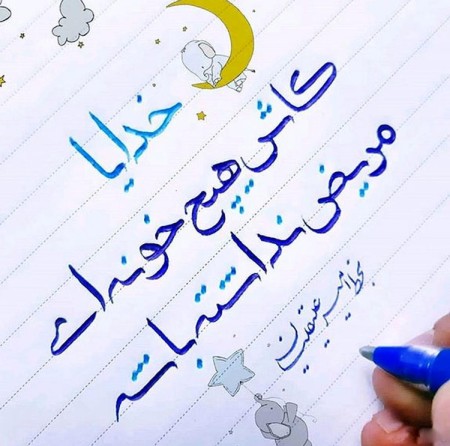 خدایا
کاش هیچ خونه ای
مریض نداشته باشه
بخط امیر